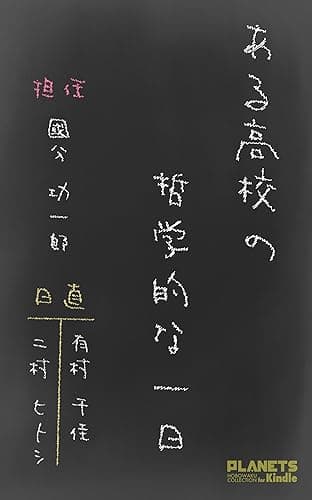 ある高校の
哲学的な一日
担任
國分 功一郎
日直
有村 千佳
二村 ヒトシ
PLANETS
HOBOWAKU
COLLECTION for Kindle